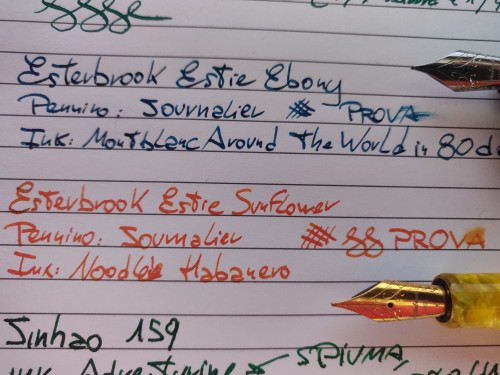 Esterbrook Estie Ebony
Pennino: Journalier PROVA
Ink: Montblanc Around The World in 80 da
Esterbrook Estie Sunflower
Pennino: Journalier PROVA
Ink: Noodle's Habanero
Jinhao 159
SPIUMA,